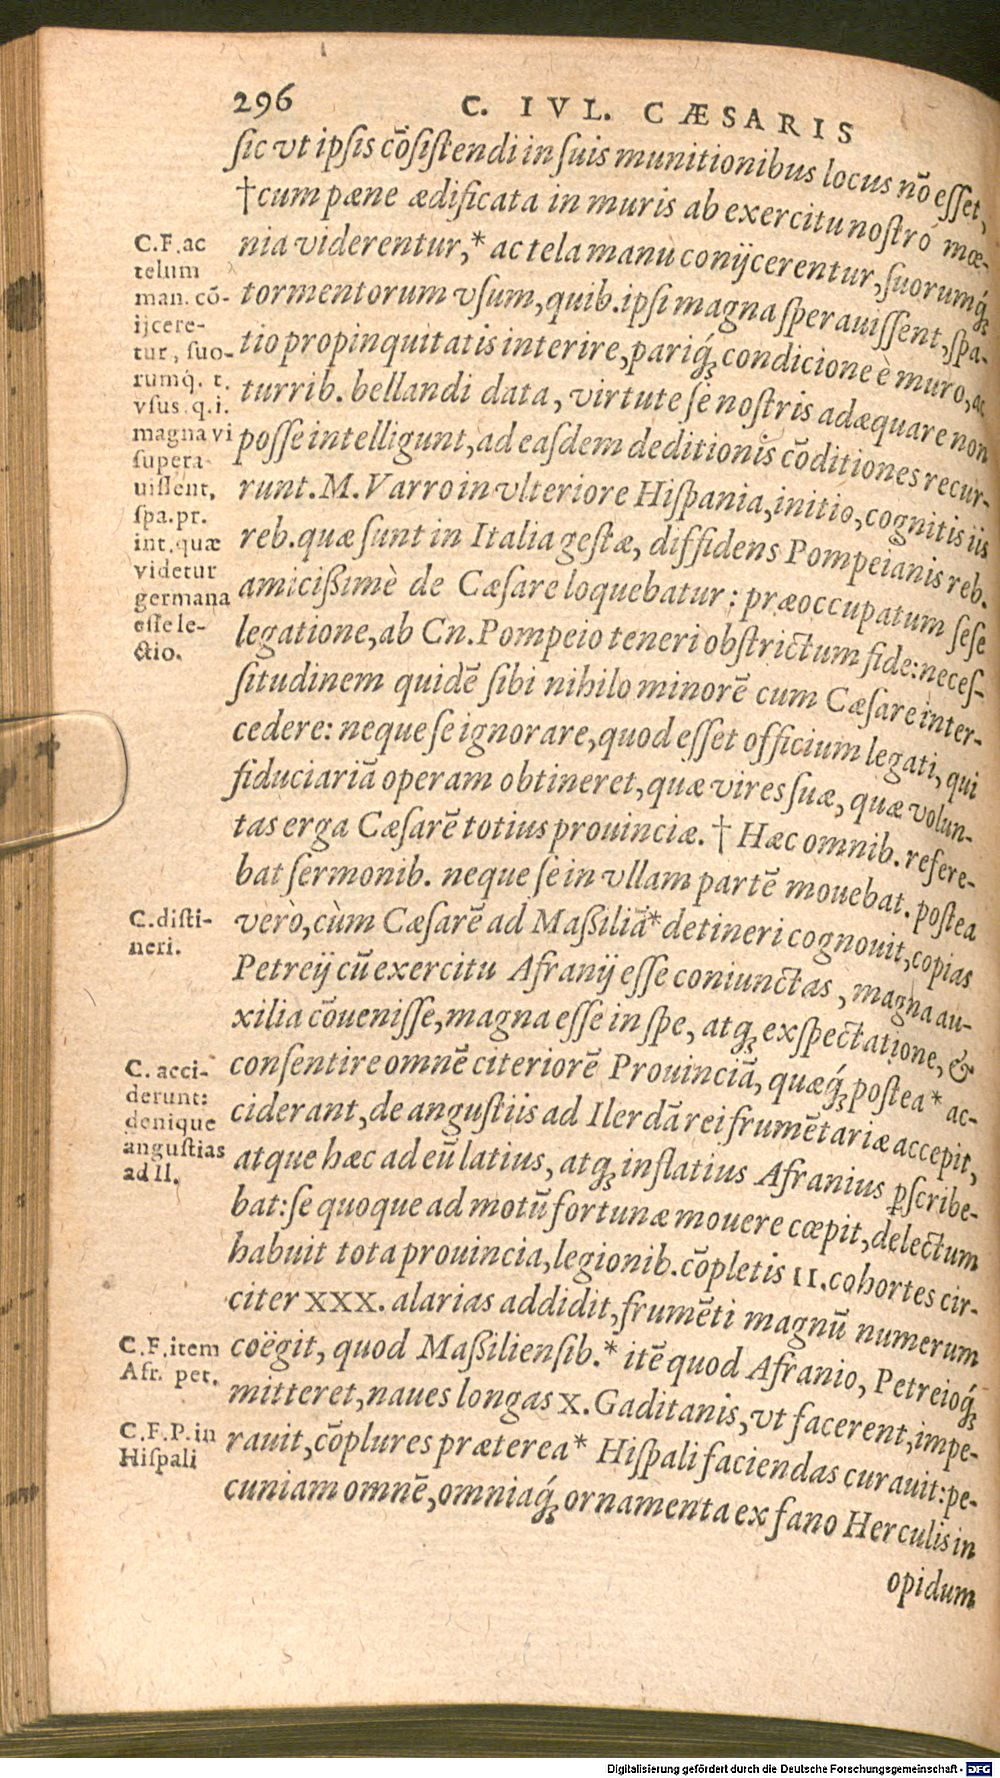 296 C. IVL. CÆSARIS
ſic vt ipſis cõſiſtendi in ſuis munitionibus locus nõ eſſet,
†cum pæne ædificata in muris ab exercitu noſtro mœ-
nia viderentur,* ac tela manu conijcerentur, ſuorumq́ꝫ
tormentorum vſum, quib. ipſi magna ſperauiſſent, ſpa-
tio propinquitatis interire, pariq́ꝫ condicione è muro, ac
turrib. bellandi data, virtute ſe noſtris adæquare non
poſſe intelligunt, ad eaſdem deditionis cõditiones recur-
runt. M. Varro in vlteriore Hiſpania, initio, cognitis iis
reb. quæ ſunt in Italia geſtæ, diffidens Pompeianis reb.
amicißimè de Cæſare loquebatur: præoccupatum ſeſe
legatione, ab Cn. Pompeio teneri obſtrictum fide: neceſ-
ſitudinem quidẽ ſibi nihilo minorẽ cum Cæſare inter-
cedere: neque ſe ignorare, quod eſſet officium legati, qui
fiduciariã operam obtineret, quæ vires ſuæ, quæ volun-
tas erga Cæſarẽ totius prouinciæ. † Hæc omnib. refere-
bat ſermonib. neque ſe in vllam partẽ mouebat. poſtea
verò, cùm Cæſarẽ ad Maßiliã* detineri cognouit, copias
Petreij cũ exercitu Afranij eſſe coniunctas, magna au-
xilia cõueniſſe, magna eſſe in ſpe, atqꝫ exſpectatione, &
conſentire omnẽ citeriorẽ Prouinciã, quæq́ꝫ poſtea* ac-
ciderant, de anguſtiis ad Ilerdã rei frumẽtariæ accepit,
atque hæc ad eũ latius, atqꝫ inflatius Afranius ꝑſcribe-
bat: ſe quoque ad motũ fortunæ mouere cœpit, delectum
habuit tota prouincia, legionib. cõpletis II. cohortes cir-
citer XXX. alarias addidit, frumẽti magnũ numerum
coëgit, quod Maßilienſib.* itẽ quod Afranio, Petreioq́ꝫ
mitteret, naues longas X. Gaditanis, vt facerent, impe-
rauit, cõplures præterea* Hiſpali faciendas curauit: pe-
cuniam omnẽ, omniaq́ꝫ ornamenta ex fano Herculis in
opidum
C. F. ac
telum
man. cõ-
ijcere-
tur, ſuo-
rumq́. t.
vſus. q. i.
magna vi
ſupera-
uiſſent,
ſpa. pr.
int. quæ
videtur
germana
eſſe le-
ctio.
C. diſti-
neri.
C. acci-
derunt:
denique
anguſtias
ad Il.
C. F. item
Afr. pet.
C. F. P. in
Hiſpali
Digitalisierung gefördert durch die Deutsche Forschungsgemeinschaft - DFG